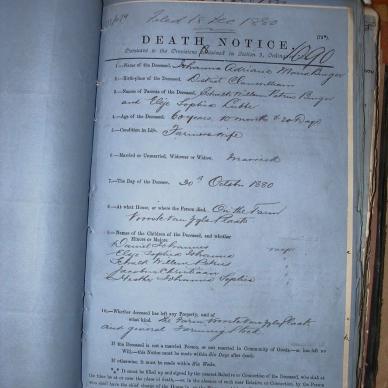 Filed 18 Dec 1880
DEATH NOTICE,
Pursuant to the Provisions contained in Section 9, Ordin
1090
1.—Name of the Deceased, Johanna Adriana Maria Burger
2.—Birth-place of the Deceased, District Clanwilliam
3.—Names of Parents of the Deceased, Schalk Willem Petrus Burger
and Elsje Sophia Lubbe
4.—Age of the Deceased, 60 years 10 months & 20 Days
5.—Condition in Life, Farmers wife
6.—Married or Unmarried, Widower or Widow, Married
7.—The Day of the Decease, 30th October 1880
8.—At what House, or where the Person died, On the Farm
9.—Names of the Children of the Deceased, and whether
Minors or Majors.
Daniel Johannes
Elsje Sophia Johanna
Schalk Willem Petrus
Jacobus Christiaan
Hester Johanna Sophia
10.—Whether deceased has left any Property, and of
what kind. The Farm
and general Farming Stock
If the Deceased is not a married Person, or not married in Community of Goods—or has left no
Will,—this Notice must be made within Six Days after death.
If otherwise it must be made within Six Weeks.
It must be filled up and signed by the nearest Relative or Connexion of the Deceased, who shall at
the time be at or near the place of death,—or in the absence of such near Relative or Connexion, by the Person
who shall have the chief charge of the House in